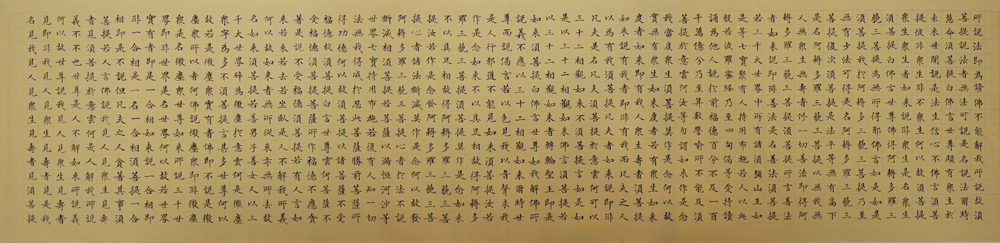 所說法即為謗佛不能解我所說故須
菩提說法者無法可說是名說法爾時
慧命須菩提白佛言世尊頗有眾生於
未來世聞說是法生信心不佛言須菩
提彼非眾生非不眾生何以故須菩提
眾生眾生者如來說非眾生是名眾生
須菩提白佛言世尊佛得阿耨多羅三
藐三菩提為無所得耶佛言如是如是
須菩提我於阿耨多羅三藐三菩提乃至
無有少法可得是名阿耨多羅三藐三
菩提復次須菩提是法平等無有高下
是名阿耨多羅三藐三菩提以無我無
人無眾生無壽者修一切善法即得阿
耨多羅三藐三菩提須菩提所言善法
者如來說即非善法是名善法須菩提
若三千大世界中所有諸須彌山王如
是等七寶聚有人持用布施若人以此
般若波羅蜜經乃至四句偈等受持讀
誦為他人說於前福德百分不及一百
千萬億分乃至算數譬喻所不能及須
菩提於意云何汝等勿謂如來作是念
我當度眾生須菩提莫作是念何以故
實無有眾生如來度者若有眾生如來
度者如來即有我人眾生壽者須菩提
如來說有我者即非有我而凡夫之人
以為有我須菩提凡夫者如來說即非
凡夫是名凡夫須菩提於意云何可以
三十二相觀如來不須菩提言如是如
是以三十二相觀如來佛言須菩提若
以三十二相觀如來者轉輪聖王即是
如來須菩提白佛言世尊如我解佛所
說義不應以三十二相觀如來爾時世
尊而說偈言若以色見我以音聲求我
是人行邪道不能見如來須菩提汝若
作是念如來不以具足相故得阿耨多
羅三藐三菩提須菩提莫作是念如來
不以具足相故得阿耨多羅三藐三菩
提汝若作是念發阿耨多羅三藐三菩
提心者說諸法斷滅莫作是念何以故
阿耨多羅三藐三菩提心者於法不說
斷滅相須菩提若菩薩以滿恒河沙等
世界七寶持用布施若復有人知一切
法無我得成於忍此菩薩勝前菩薩所
得功德何以故須菩提以諸菩薩不受
福德故須菩提白佛言世尊云何菩薩
不受福德須菩提菩薩所作福德不應貪
著是故說不受福德須菩提若有人言如
來若來若去若坐若臥是人不解我所說義
何以故如來者無所從來亦無所去故
名如來須菩提若善男子善女人以三
千大千世界碎為微塵於意云何是微塵
眾寧為多不甚多世尊何以
故若是微塵眾實有者佛即不說
是微塵眾所以者何佛說微塵
眾即非微塵眾是名微塵眾世尊如來所說三千大千世
界即非世界是名世界何以故若世界
實有者即是一合相如來說一合相即
非一合相是名一合相須菩提一合
相者即是不可說但凡夫之人貪著其事須
菩提若人言佛說我見人見眾生見壽
者見須菩提於意云何是人解我所說
義不不也世尊是人不解如來所說義
何以故世尊說我見人見眾生見壽者
見即非我見人見眾生見壽者見是
名我見人見眾生見壽者見須菩提